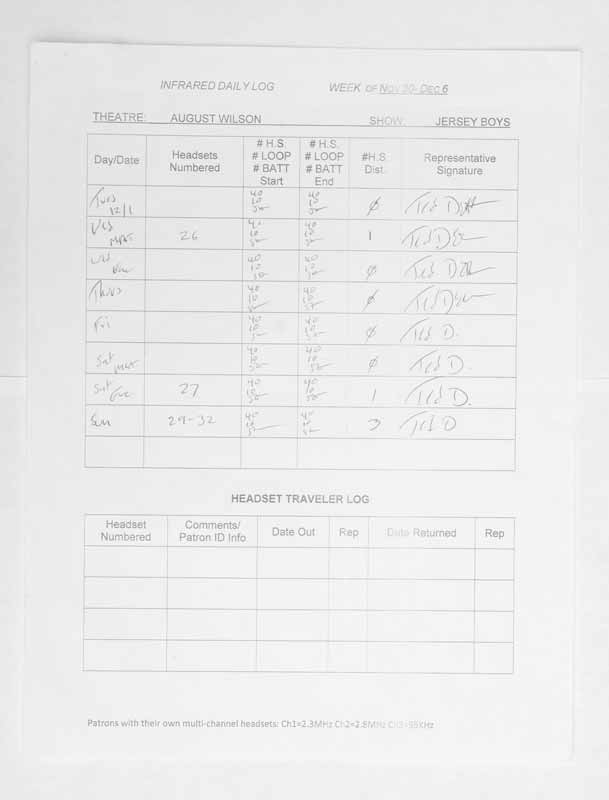 INFRARED DAILY LOG WEEK OF Nov 30- Dec 6
THEATRE: AUGUST WILSON SHOW: JERSEY BOYS
Day/Date Headsets Numbered # H.S. # LOOP # BATT Start # H.S. # LOOP # BATT End #H.S. Dist. Representative Signature
Tues 12/1 40 10 50 40 10 50 Ø Ted D
Wed Mat 26 40 10 50 40 10 50 1 Ted D
Wed Eve 40 10 50 40 10 50 Ø Ted D
Thurs 40 10 50 40 10 50 Ø Ted D
Fri 40 10 50 40 10 50 Ø Ted D.
Sat Mat 40 10 50 40 10 50 Ø Ted D.
Sat Eve 27 40 10 50 40 10 50 1 Ted D.
Sun 29-32 40 10 50 40 10 50 3 Ted D
HEADSET TRAVELER LOG
Headset Numbered Comments/ Patron ID Info Date Out Rep Date Returned Rep
Patrons with their own multi-channel headsets: Ch1=2.3MHz Ch2=2.8MHz Ch3=95KHz